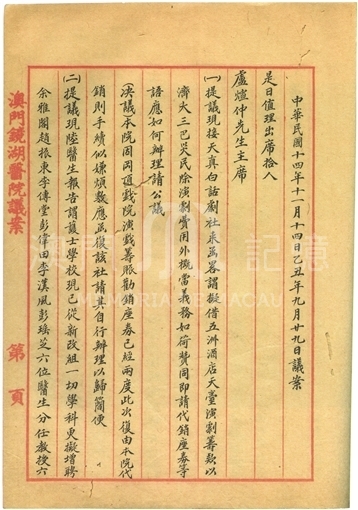 中華民國十四年十一月十四日乙丑年九月廿九日議案
是日值理出席拾人
盧煊仲先生主席
(一)提議現接天真白話劇社來函畧謂擬借五洲酒店天堂演劇籌款以
濟大三巴災民除演劇費用外概當義務如荷贊同即請代銷座券等
語應如何辦理請公議
(決議)本院因同道戲院演戲籌賑勸銷座券已經兩度此次復由本院代
銷則手續似嫌煩數應函復該社請其自行辦理以歸簡便
(二)提議現陸醫生報告謂護士學校現已從新改組一切學科更擬增聘
余雅閣趙振東李傳堂彭偉田李漢風彭瑤芝六位醫生分任教授六
澳門鏡湖醫院議案
第 頁
記憶
MEMÓRIA DE MACAU